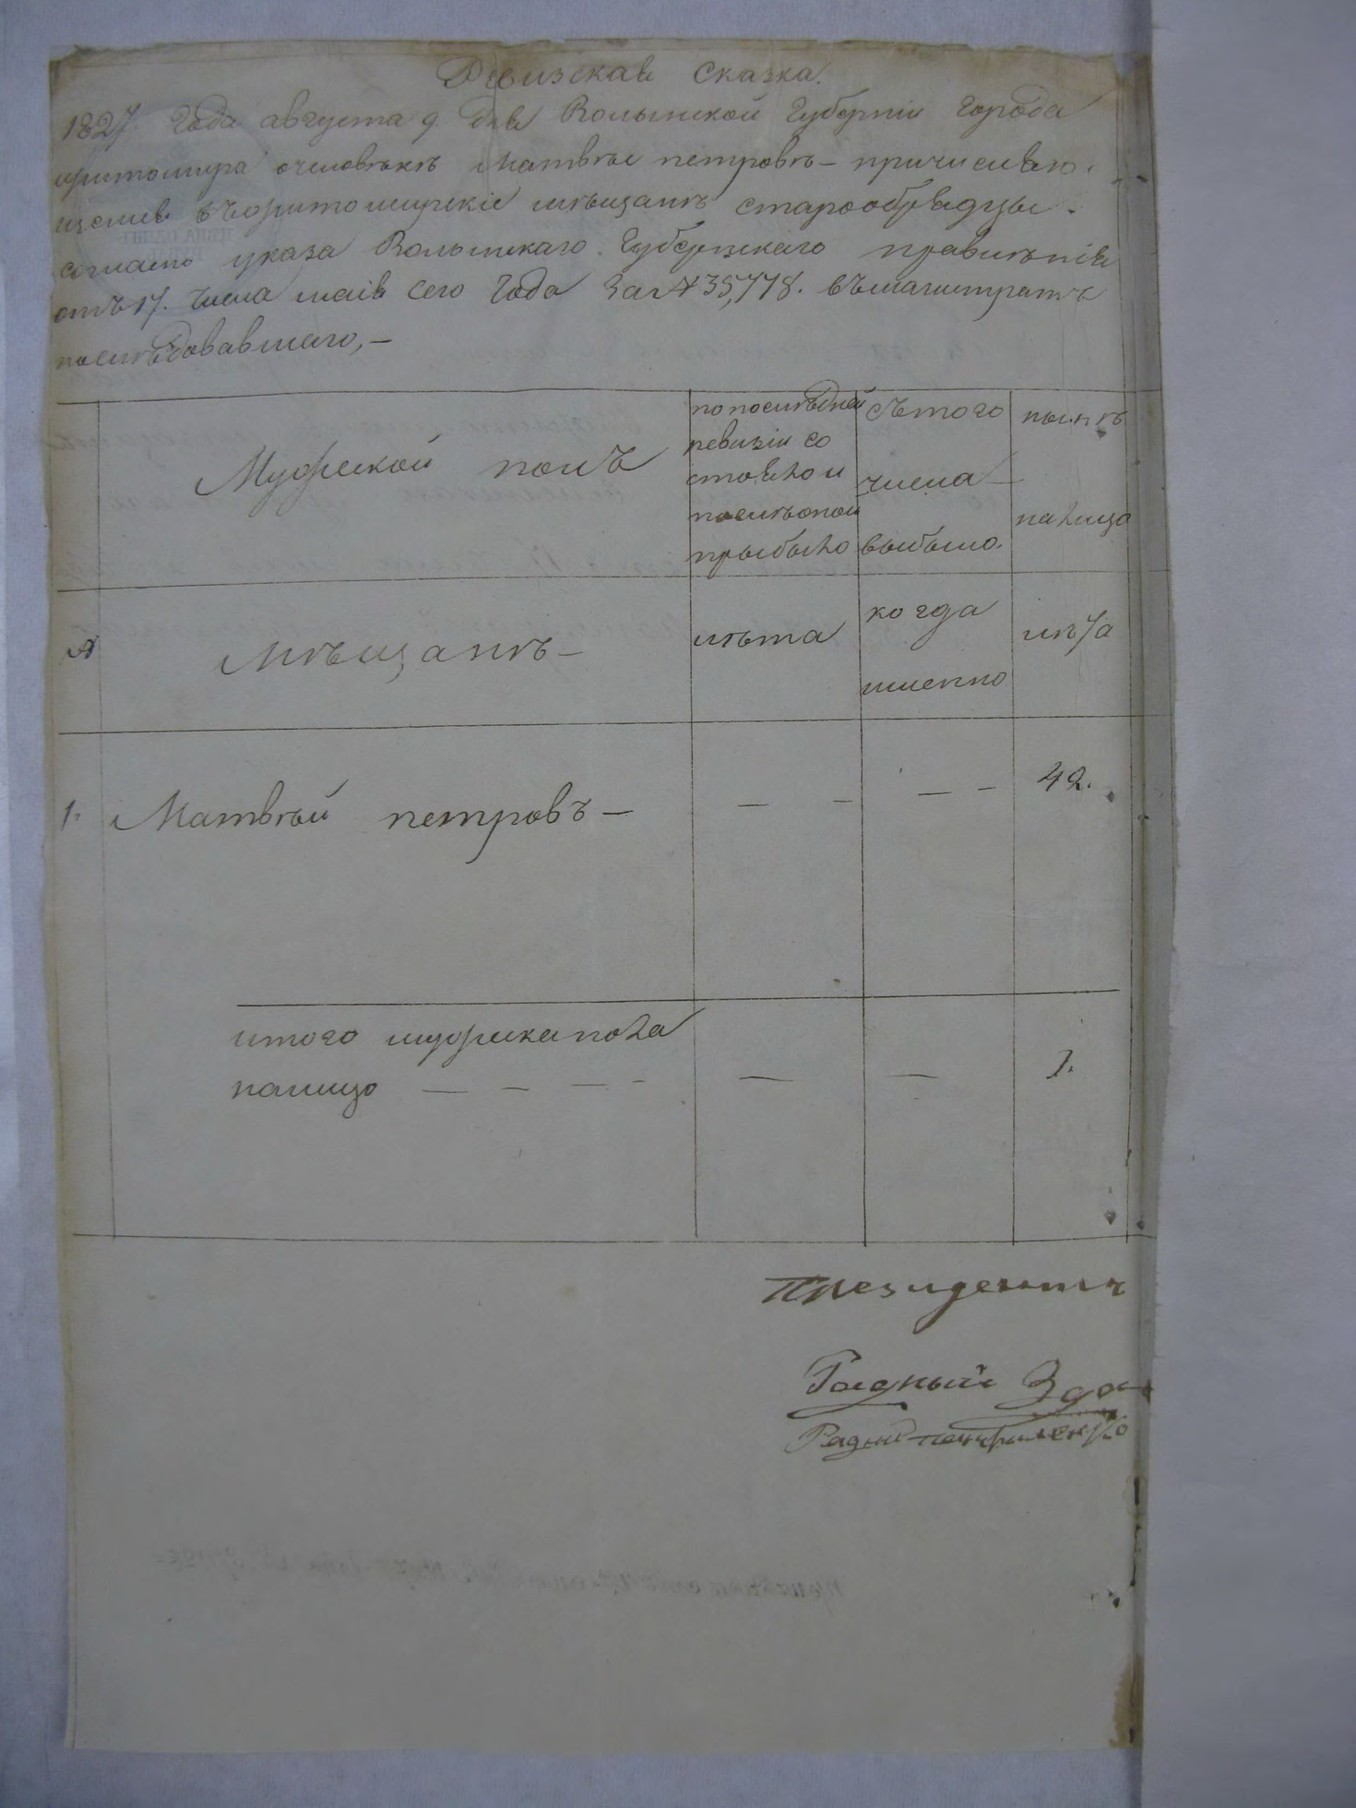 Ревизская Сказка.
1827 Года августа 9 дня Волынской Губернии Города
житомира очеловѣкѣ Матвѣе петровѣ – причисляю-
щемся въжитомирскіе мѣщанѣ старообрядцы.
согласно указа Волынскаго Губернскаго правленія
отъ 17. числа маія сего Года За № 35,778. въмагистратъ
послѣдовавшаго, –
Мужеской полъ
попослѣдней
ревизіи со
стояло и
послѣоной
прыбыло
сѣтого
числа –
выбыло.
нынѣ
налицо
№
Мѣщанѣ –
лѣта
когда
имянно
лѣта
1. Матвѣй петровъ – — - — - 42.
итого мужеска пола
налицо — – — - — — 1.
Президентъ
Радный